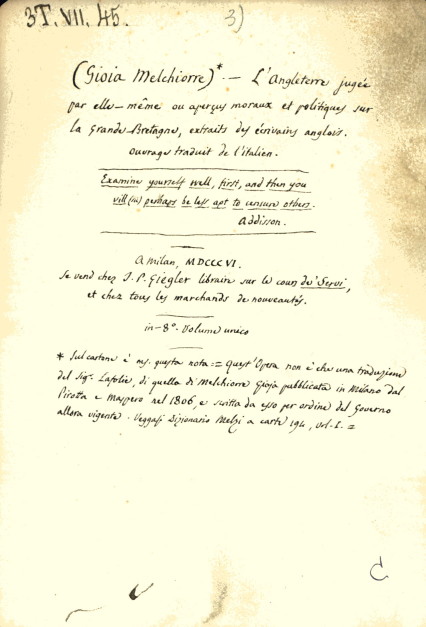 3T. VII. 45.
3)
(Gioia Melchiorre)* — L'Angleterre jugée
par elle-même ou aperçus moraux et politiques sur
la Grande-Bretagne, extraits des écrivains anglois.
Ouvrage traduit de l'italien.
Examine yourself well, first, and then you
vill (sic) perhaps be less apt to censure others.
Addisson.
A milan, MDCCCVI.
se vend chez J. P. Giegler libraire sur le cours de' Servi,
et chez tous les marchands de nouveautés.
in-8°. Volume unico
* Sul cartone è ms. questa nota: = Quest'Opera non è che una traduzione
del Sig.r Lafolie, di quella di Melchiorre Gioja pubblicata in Milano dal
Pirotta e Maspero nel 1806, e scritta da esso per ordine del Governo
allora vigente. Veggasi Dizionario Melzi a carte 194, vol. I. =
C